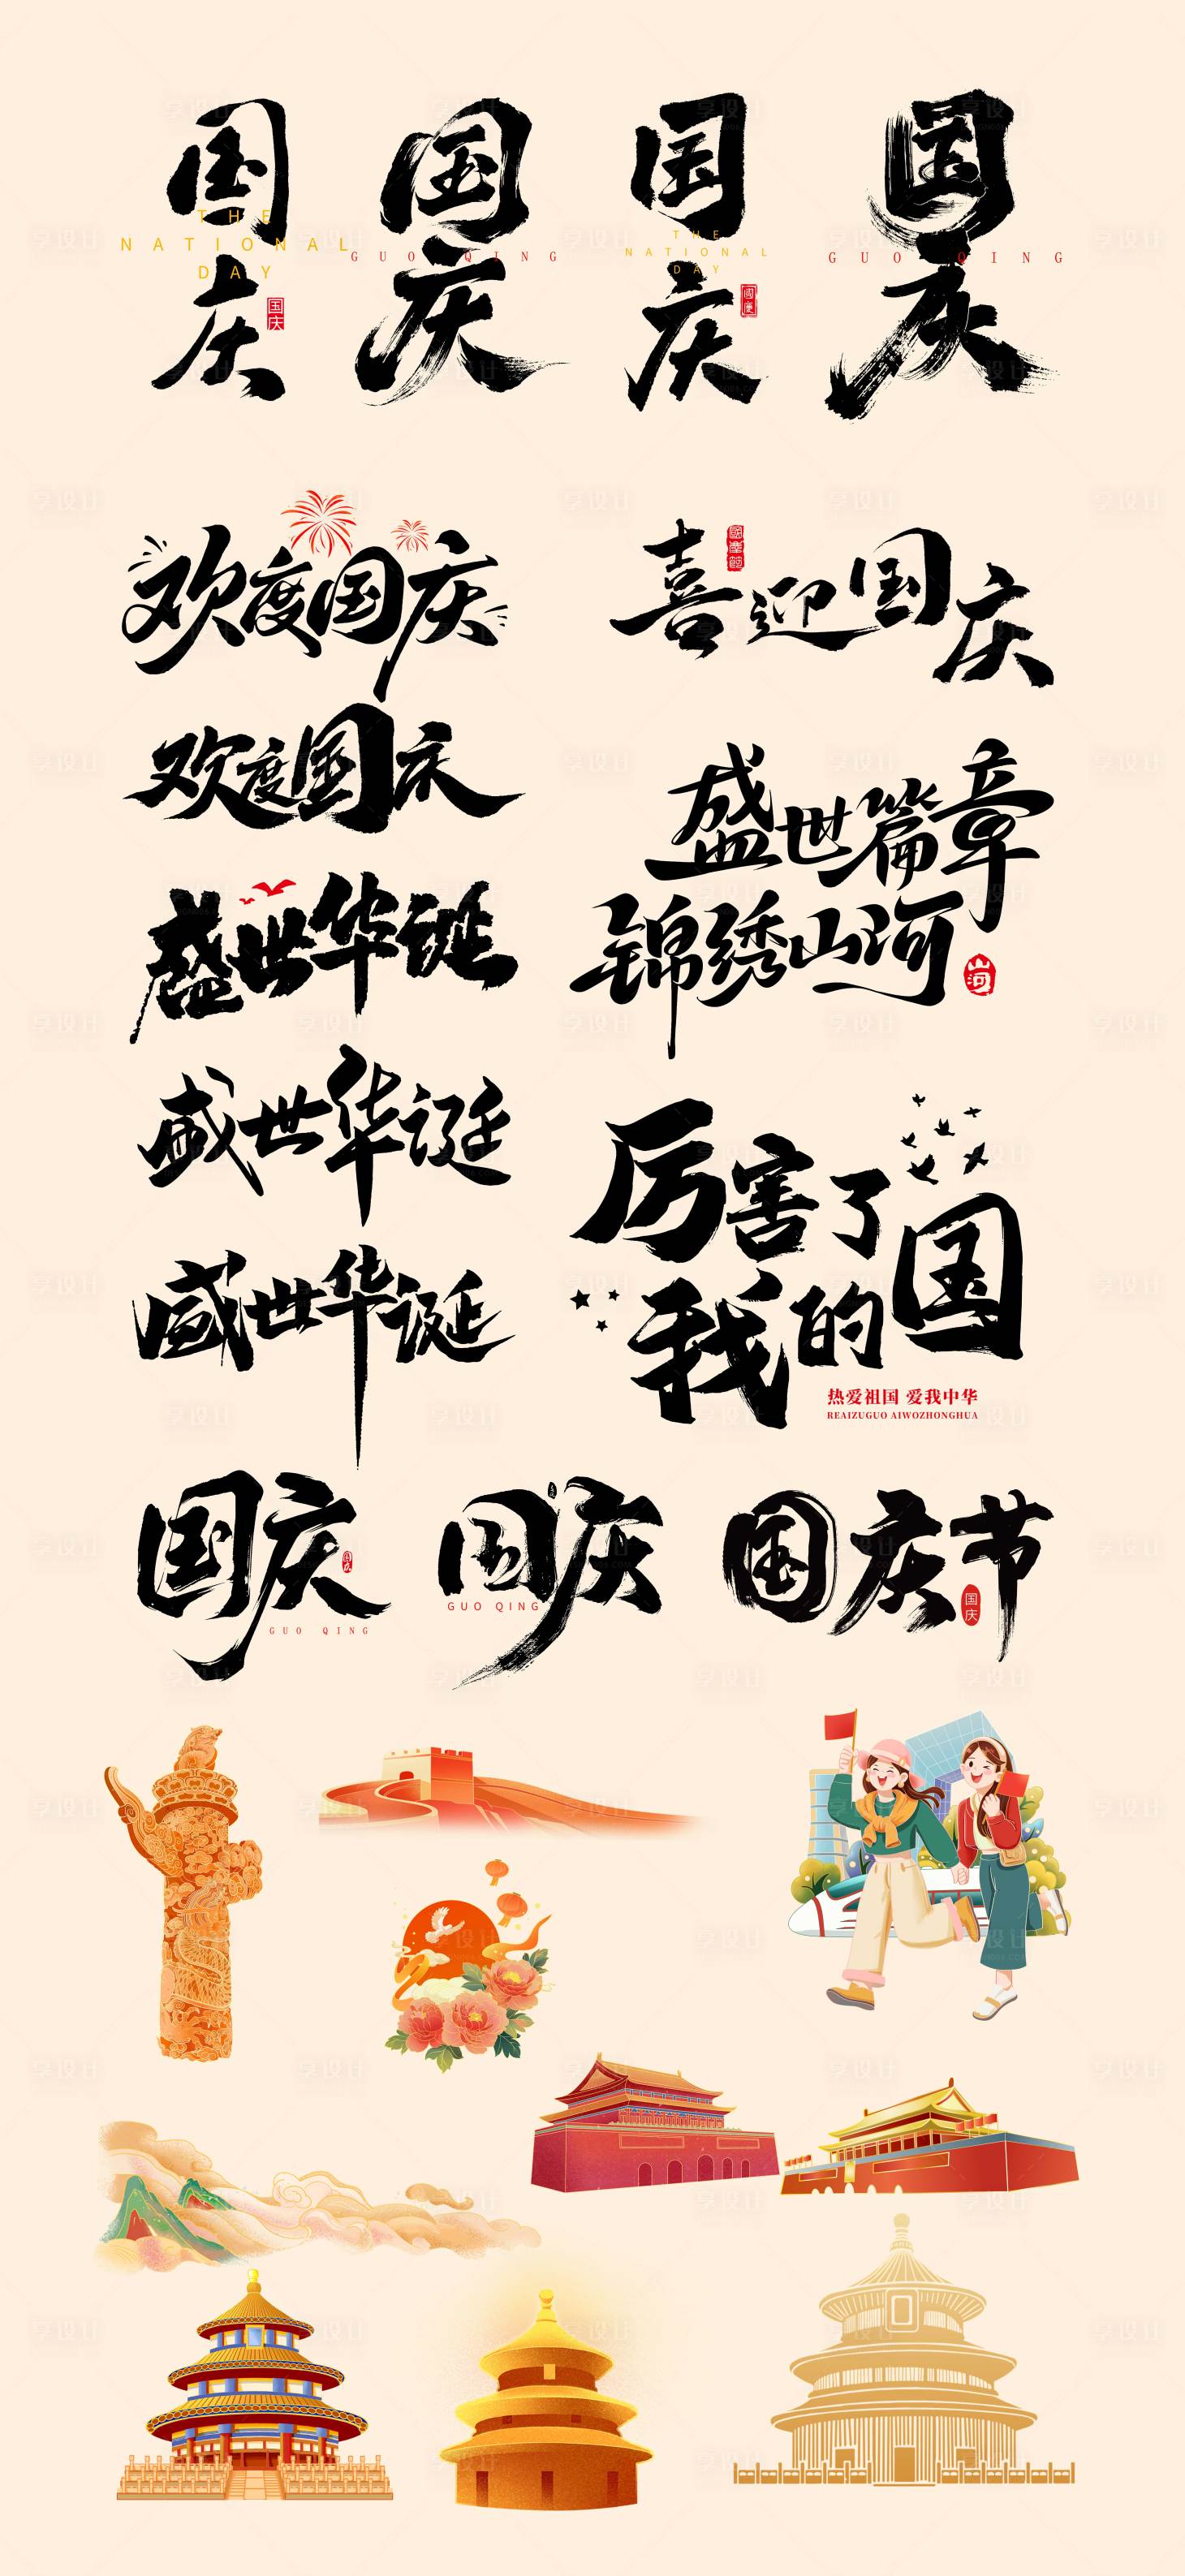 国庆
THE
NATIONAL
DAY
国庆
国庆
GUO QING
国庆
THE
NATIONAL
DAY
國慶
国庆
GUO QING
欢度国庆
喜迎国庆
國慶節
欢度国庆
盛世篇章
锦绣山河
山河
盛世华诞
盛世华诞
厉害了
我的国
热爱祖国 爱我中华
REAIZUGUO AIWOZHONGHUA
盛世华诞
国庆
国庆
GUO QING
国庆
GUO QING
国庆节
国庆
享设计